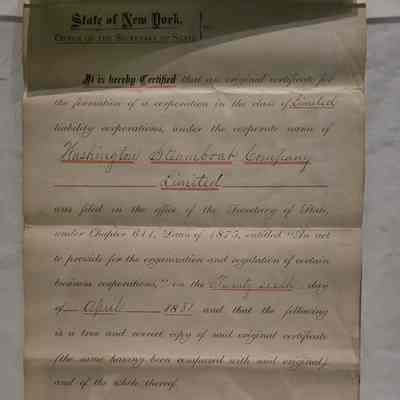 State of New York,
Office of the Secretary of State
It is hereby Certified that an original certificate for
the formation of a corporation in the class of Limited
liability corporations, under the corporate name of
Washington Steamboat Company
Limited
was filed in the office of the Secretary of State,
under Chapter 611, Laws of 1875, entitled "An act
to provide for the organization and regulation of certain
business corporations," on the Twenty sixth day
of April 1881 and that the following
is a true and correct copy of said original certificate
(the same having been compared with said original,)
and of the whole thereof.